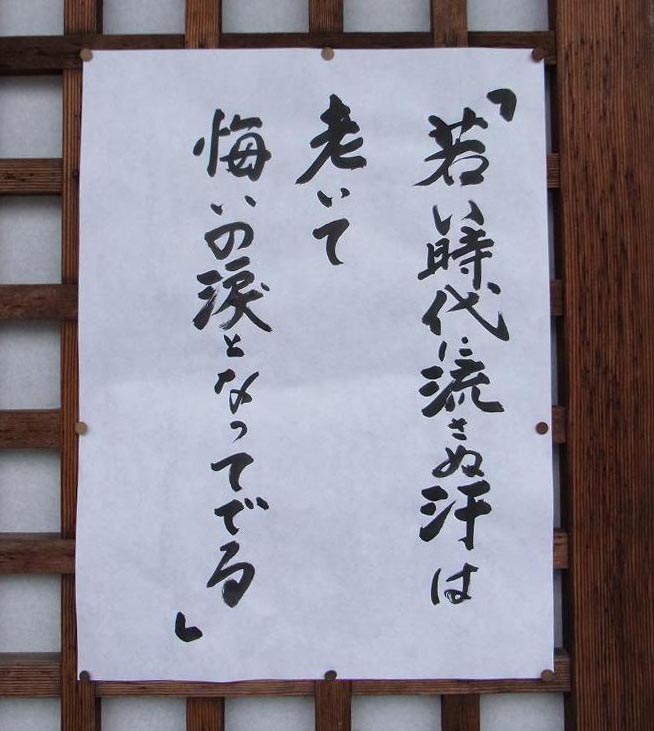 「若い時代に流さぬ汗は
老いて
悔いの涙となってでる」